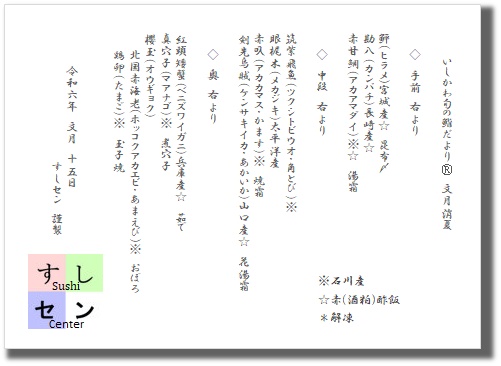 いしかわ旬の鮨だより® 文月 消夏
◇ 手前 右より
鮃(ヒラメ)宮城産☆ 昆布〆
勘八(カンパチ)長崎産☆
赤甘鯛(アカアマダイ)※☆ 湯霜
◇ 中段 右より
筑紫飛魚(ツクシトビウオ・角とび)※
眼梶木(メカジキ)太平洋産
赤叺(アカカマス・かます)※ 焼霜
剣先烏賊(ケンサキイカ・あかいか)山口産☆ 花湯霜
◇ 奥 右より
紅頭矮蟹(ベニズワイガニ)兵庫産☆ 茹で
真穴子(マアナゴ)※ 煮穴子
櫻玉(オウギョク)
北国赤海老(ホッコクアカエビ・あまえび)※ おぼろ
鶏卵(たまご)※ 玉子焼
令和六年 文月 十五日
すしセン 謹製
※石川産
☆赤(酒粕)酢飯
＊解凍
すし
Sushi
セン
Center